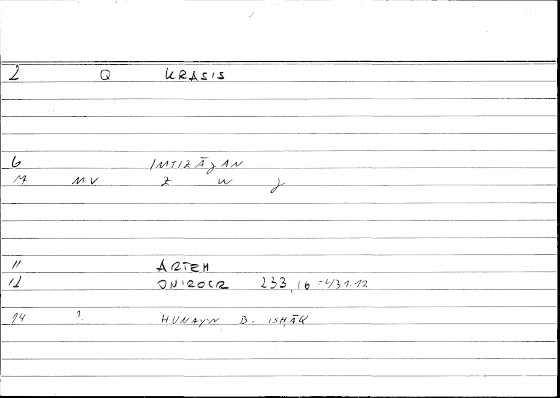 2 Q KRASIS
6 IMTIZĀǧAN
M MV Z W ǧ
11 ARTEM
12 ONIROCR 233,16 = 431.12
14 1. HUNAYN B. ISḤĀK